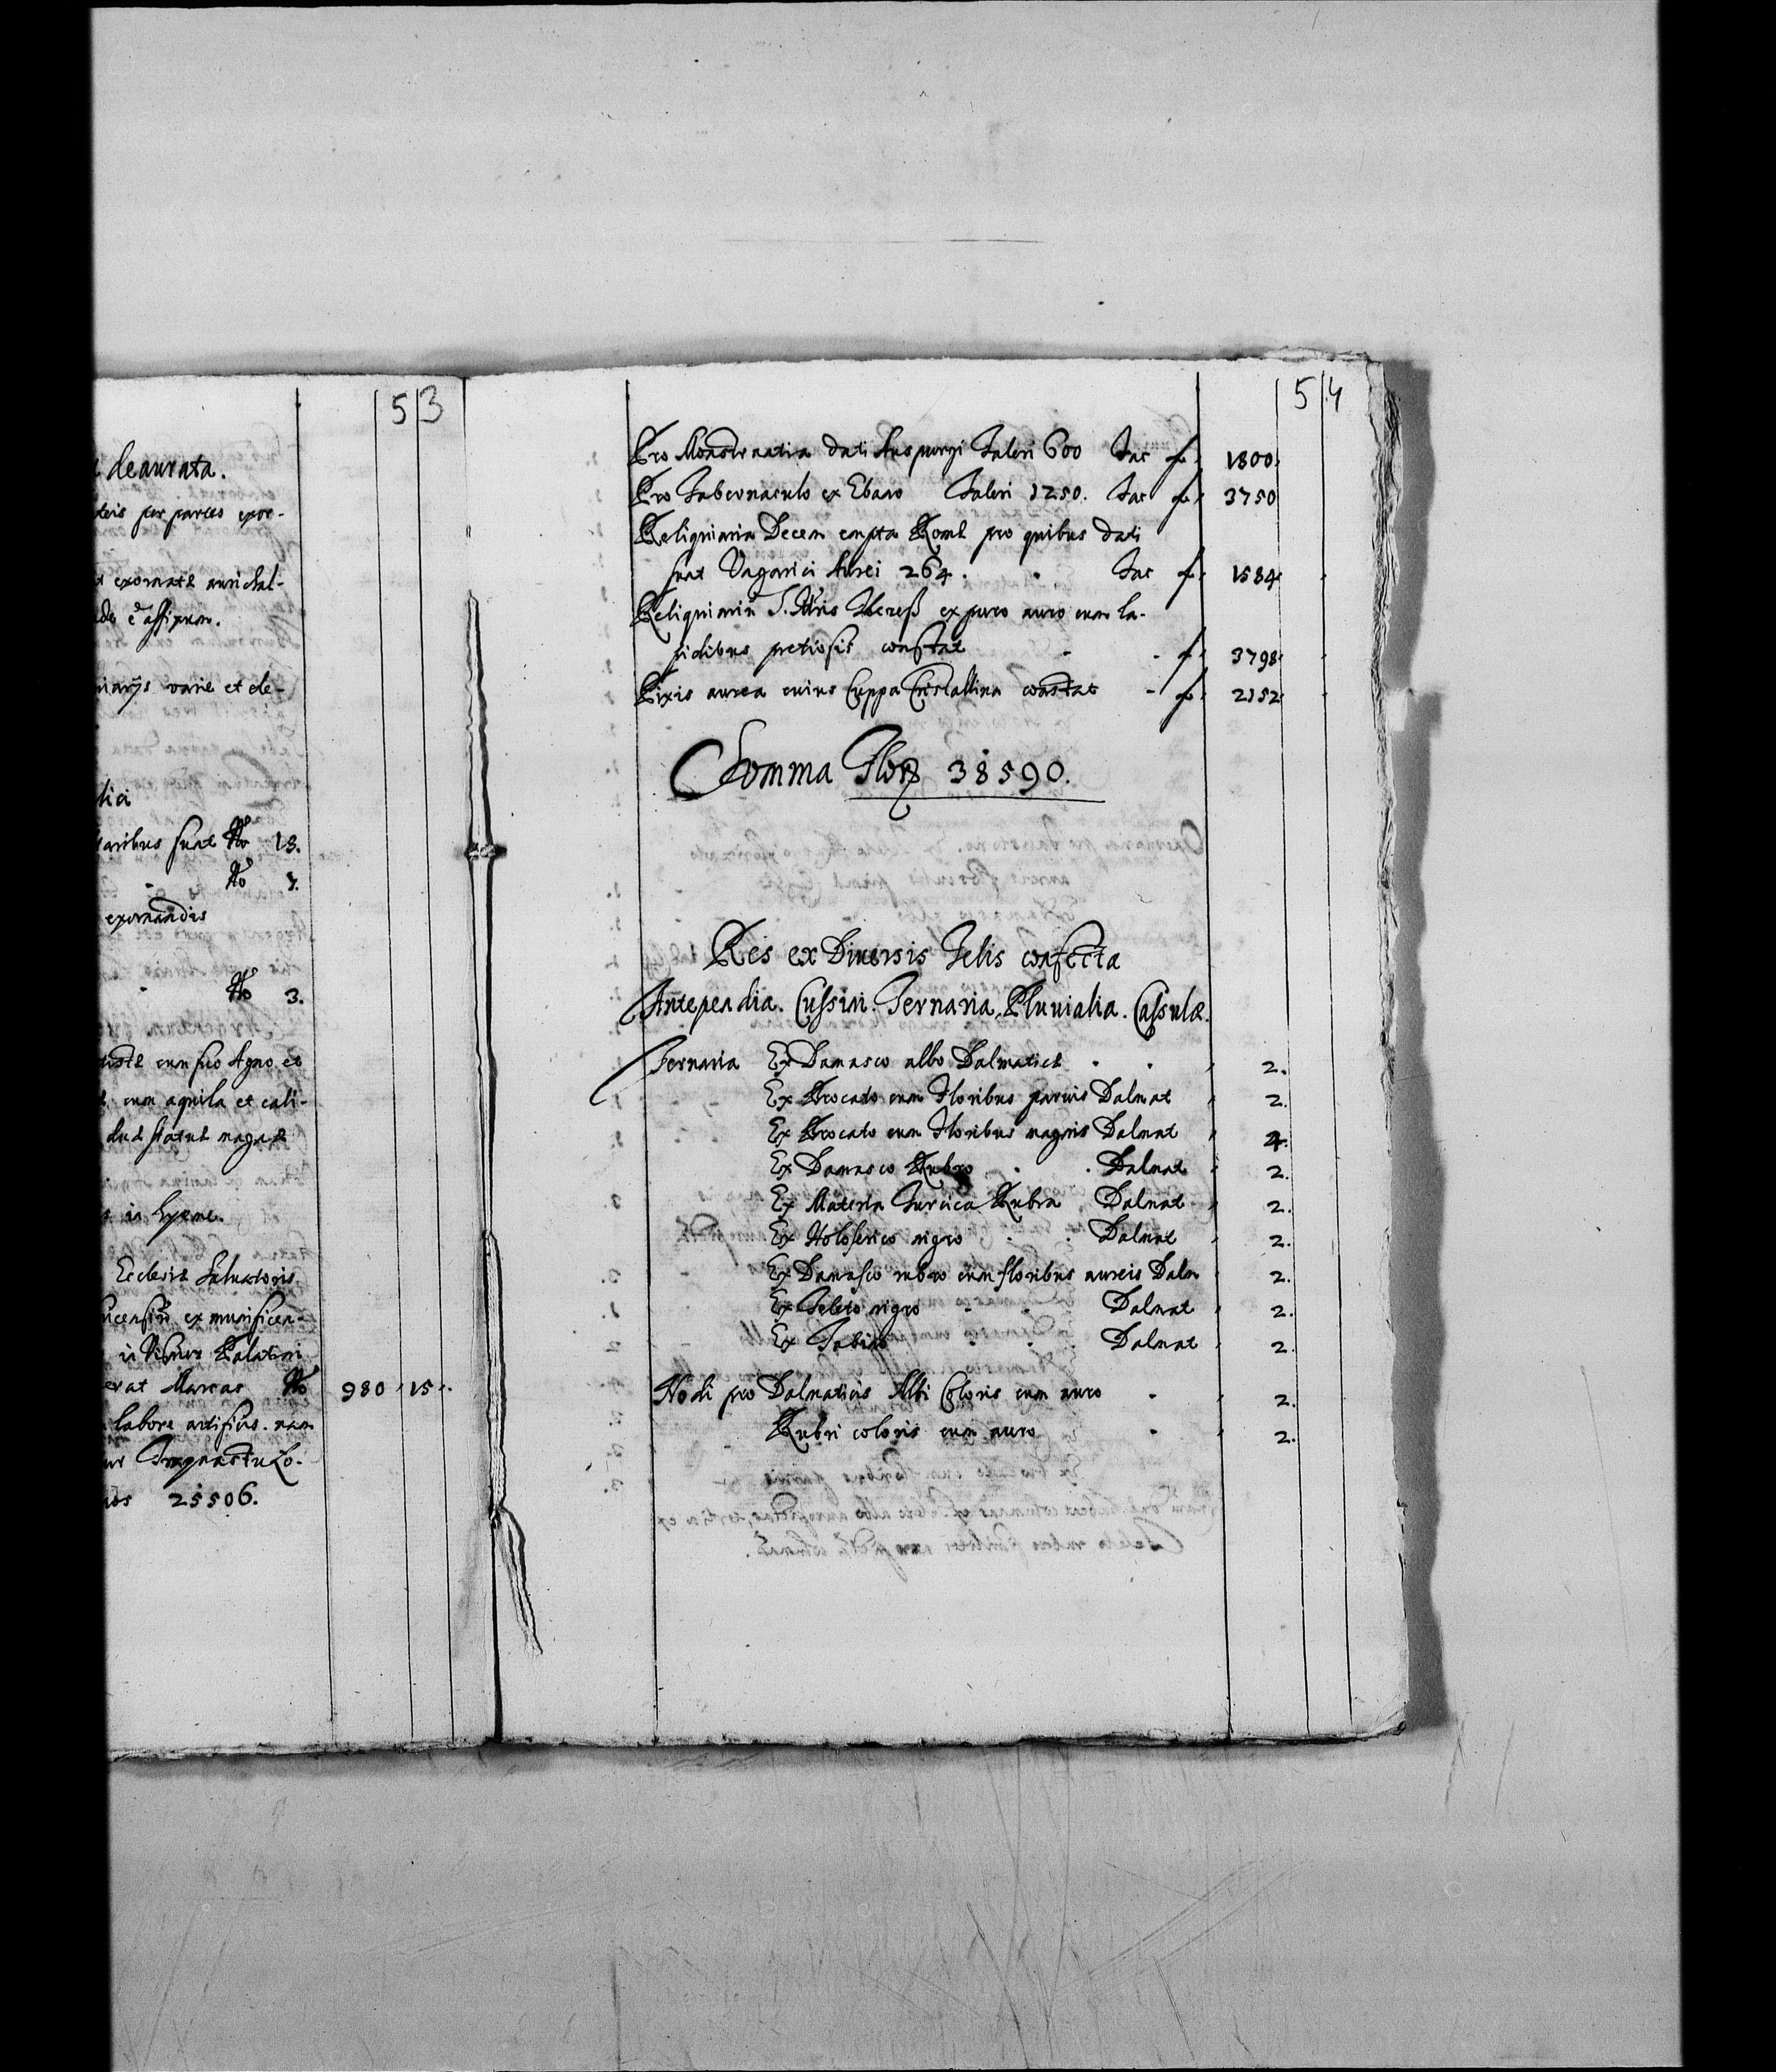 53
deaurata.
per partes exor-
exornatæ aurichal-
affixum.
varie et de-
aribus sunt No 13.
No
exornandis
No 3.
cum suo Agno et
cum aquila et cali-
statuæ magnæ
in Hyeme.
Ecclesiæ Saluatoris
ex munificen-
Palatini
Marcas No 980 15
labore artificis. nam
25506.
54
Pro Monstrantia dati Auspurgi Taleri 600 fac f. 1800
Pro Tabernaculo ex Ebano Taleri 1250. fac f. 3750
Reliquiaria Decem empta Romæ pro quibus dati
sunt Vngarici Aurei 264. fac f. 1584
ex puro auro cum la-
pidibus pretiosis constat f. 3798
Pixis aurea cuius Cuppa Cristallina constat f. 2152
Somma Flor 38590.
Res ex Diuersis Telis confecta
Antependia. Cussini. Ternaria. Pluuialia. Casulæ.
Ternaria Ex Damasco albo Dalmaticæ 2.
Ex Brocato cum Floribus paruis Dalmat 2.
Ex Brocato cum Floribus magnis Dalmat 4.
Ex Damasco Rubro Dalmat 2.
Ex Materia Turcica Rubra Dalmat 2.
Ex Holoserico nigro Dalmat 2.
Ex Damasco rubro cum floribus aureis Dalm 2.
Ex Teleto nigro Dalmat 2.
Ex Tabino Dalmat 2.
Nodi pro Dalmaticis Albi Coloris cum auro 2.
Rubri coloris cum auro 2.